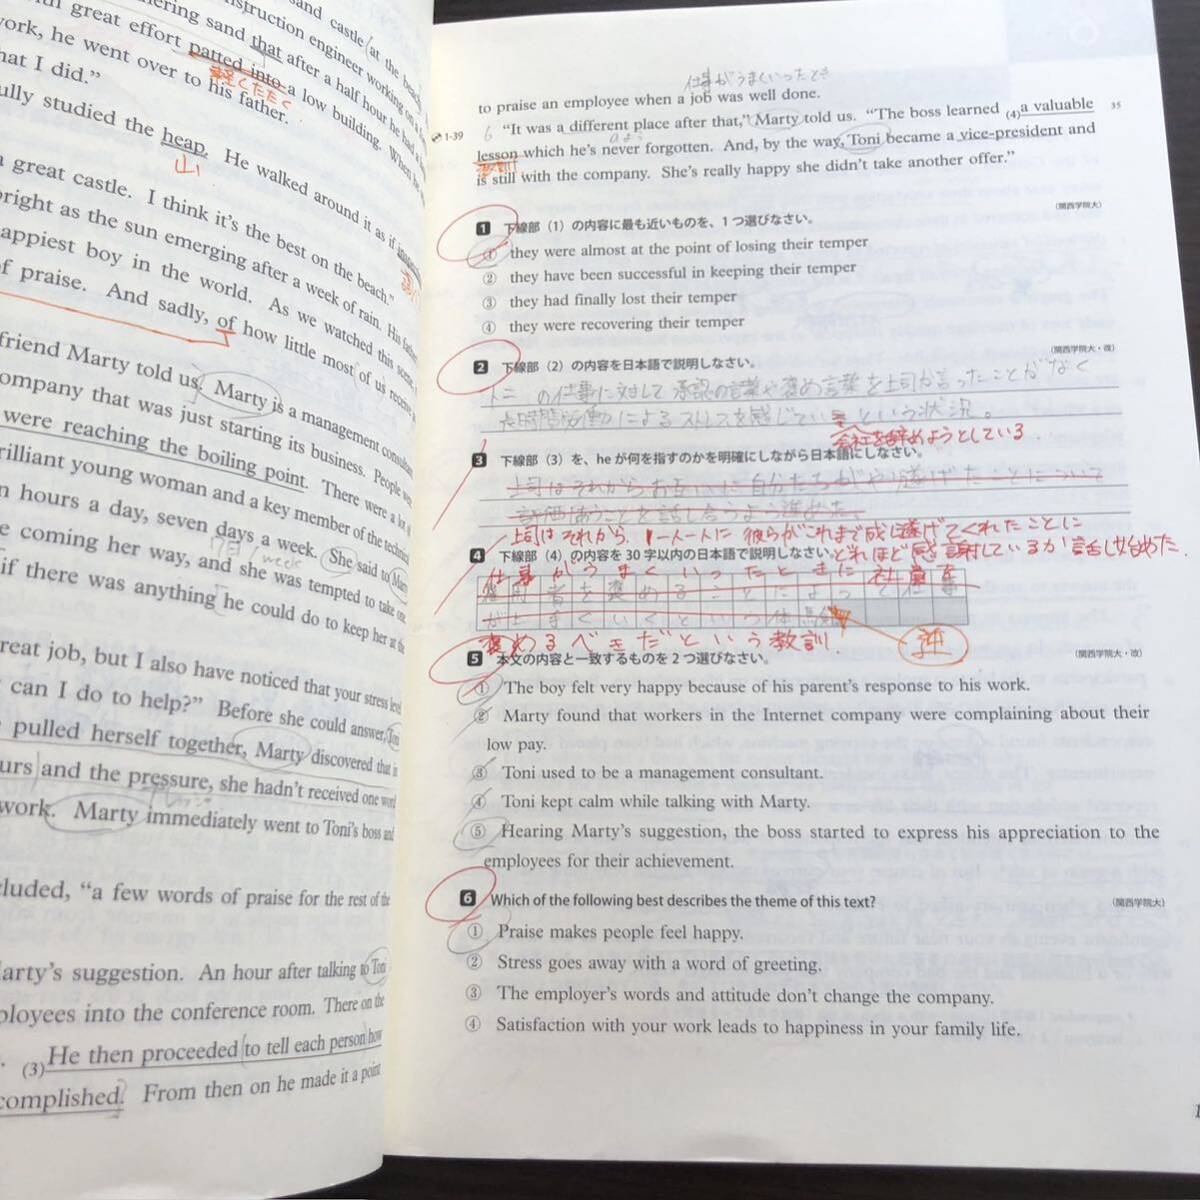 sand castle at the beach
struction engineer working on a
ering sand that after a half hour he had a
th great effort patted into a low building. When he
軽くたたく
work, he went over to his father.
hat I did.”
ully studied the heap. He walked around it as if
山
a great castle. I think it’s the best on the beach.”
bright as the sun emerging after a week of rain. His father
appiest boy in the world. As we watched this scene,
of praise. And sadly, of how little most of us receive
friend Marty told us. Marty is a management consultant
ompany that was just starting its business. People
were reaching the boiling point. There were a lot
rilliant young woman and a key member of the technical
n hours a day, seven days a week. She said to Marty
7日/week
e coming her way, and she was tempted to take one
if there was anything he could do to keep her at the
reat job, but I also have noticed that your stress level
can I do to help?” Before she could answer, Toni
pulled herself together, Marty discovered that in
urs and the pressure, she hadn’t received one word
work. Marty immediately went to Toni’s boss and
luded, “a few words of praise for the rest of the
arty’s suggestion. An hour after talking to Toni
ployees into the conference room. There on the
(3)He then proceeded to tell each person how
complished. From then on he made it a point
仕事がうまくいったとき
to praise an employee when a job was well done.
1-39 6 “It was a different place after that,” Marty told us. “The boss learned (4)a valuable 35
lesson which he’s never forgotten. And, by the way, Toni became a vice-president and
教訓
is still with the company. She’s really happy she didn’t take another offer.”
(関西学院大)
1 下線部（1）の内容に最も近いものを、1つ選びなさい。
① they were almost at the point of losing their temper
② they have been successful in keeping their temper
③ they had finally lost their temper
④ they were recovering their temper
(関西学院大・改)
2 下線部（2）の内容を日本語で説明しなさい。
トニーの仕事に対して承認の言葉や褒め言葉を上司が言ったことがなく
長時間労働によるストレスを感じているという状況。
会社を辞めようとしている
3 下線部（3）を、heが何を指すのかを明確にしながら日本語にしなさい。
上司はそれからお互いに自分たちがやり遂げたことについて
評価しあうことを話し合うよう進めた。
上司はそれから、一人一人に彼らがこれまで成し遂げてくれたことに
4 下線部（4）の内容を30字以内の日本語で説明しなさい。
どれほど感謝しているか話し始めた.
仕事がうまくいったときに社員を
雇用者を褒めることによって仕事
がうまくいくという体
逆
褒めるべきだという教訓.
5 本文の内容と一致するものを2つ選びなさい。
(関西学院大・改)
① The boy felt very happy because of his parent’s response to his work.
② Marty found that workers in the Internet company were complaining about their
low pay.
③ Toni used to be a management consultant.
④ Toni kept calm while talking with Marty.
⑤ Hearing Marty’s suggestion, the boss started to express his appreciation to the
employees for their achievement.
6 Which of the following best describes the theme of this text?
(関西学院大)
① Praise makes people feel happy.
② Stress goes away with a word of greeting.
③ The employer’s words and attitude don’t change the company.
④ Satisfaction with your work leads to happiness in your family life.